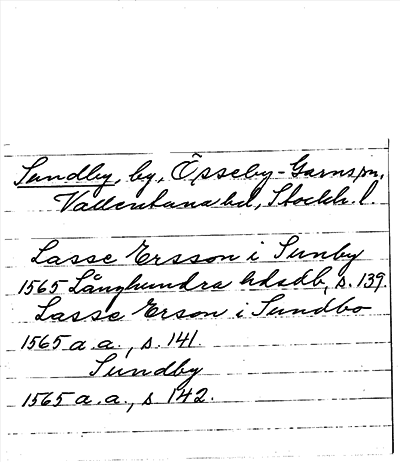 Sundby, by, Össeby-Garns sn,
Vallentuna hd, Stockh. l.
Lasse Ersson i Sunby
1565 Långhundra hdsdb, s. 139.
Lasse Erson i Sundbo
1565 a. a., s. 141.
Sundby
1565 a. a., s 142.